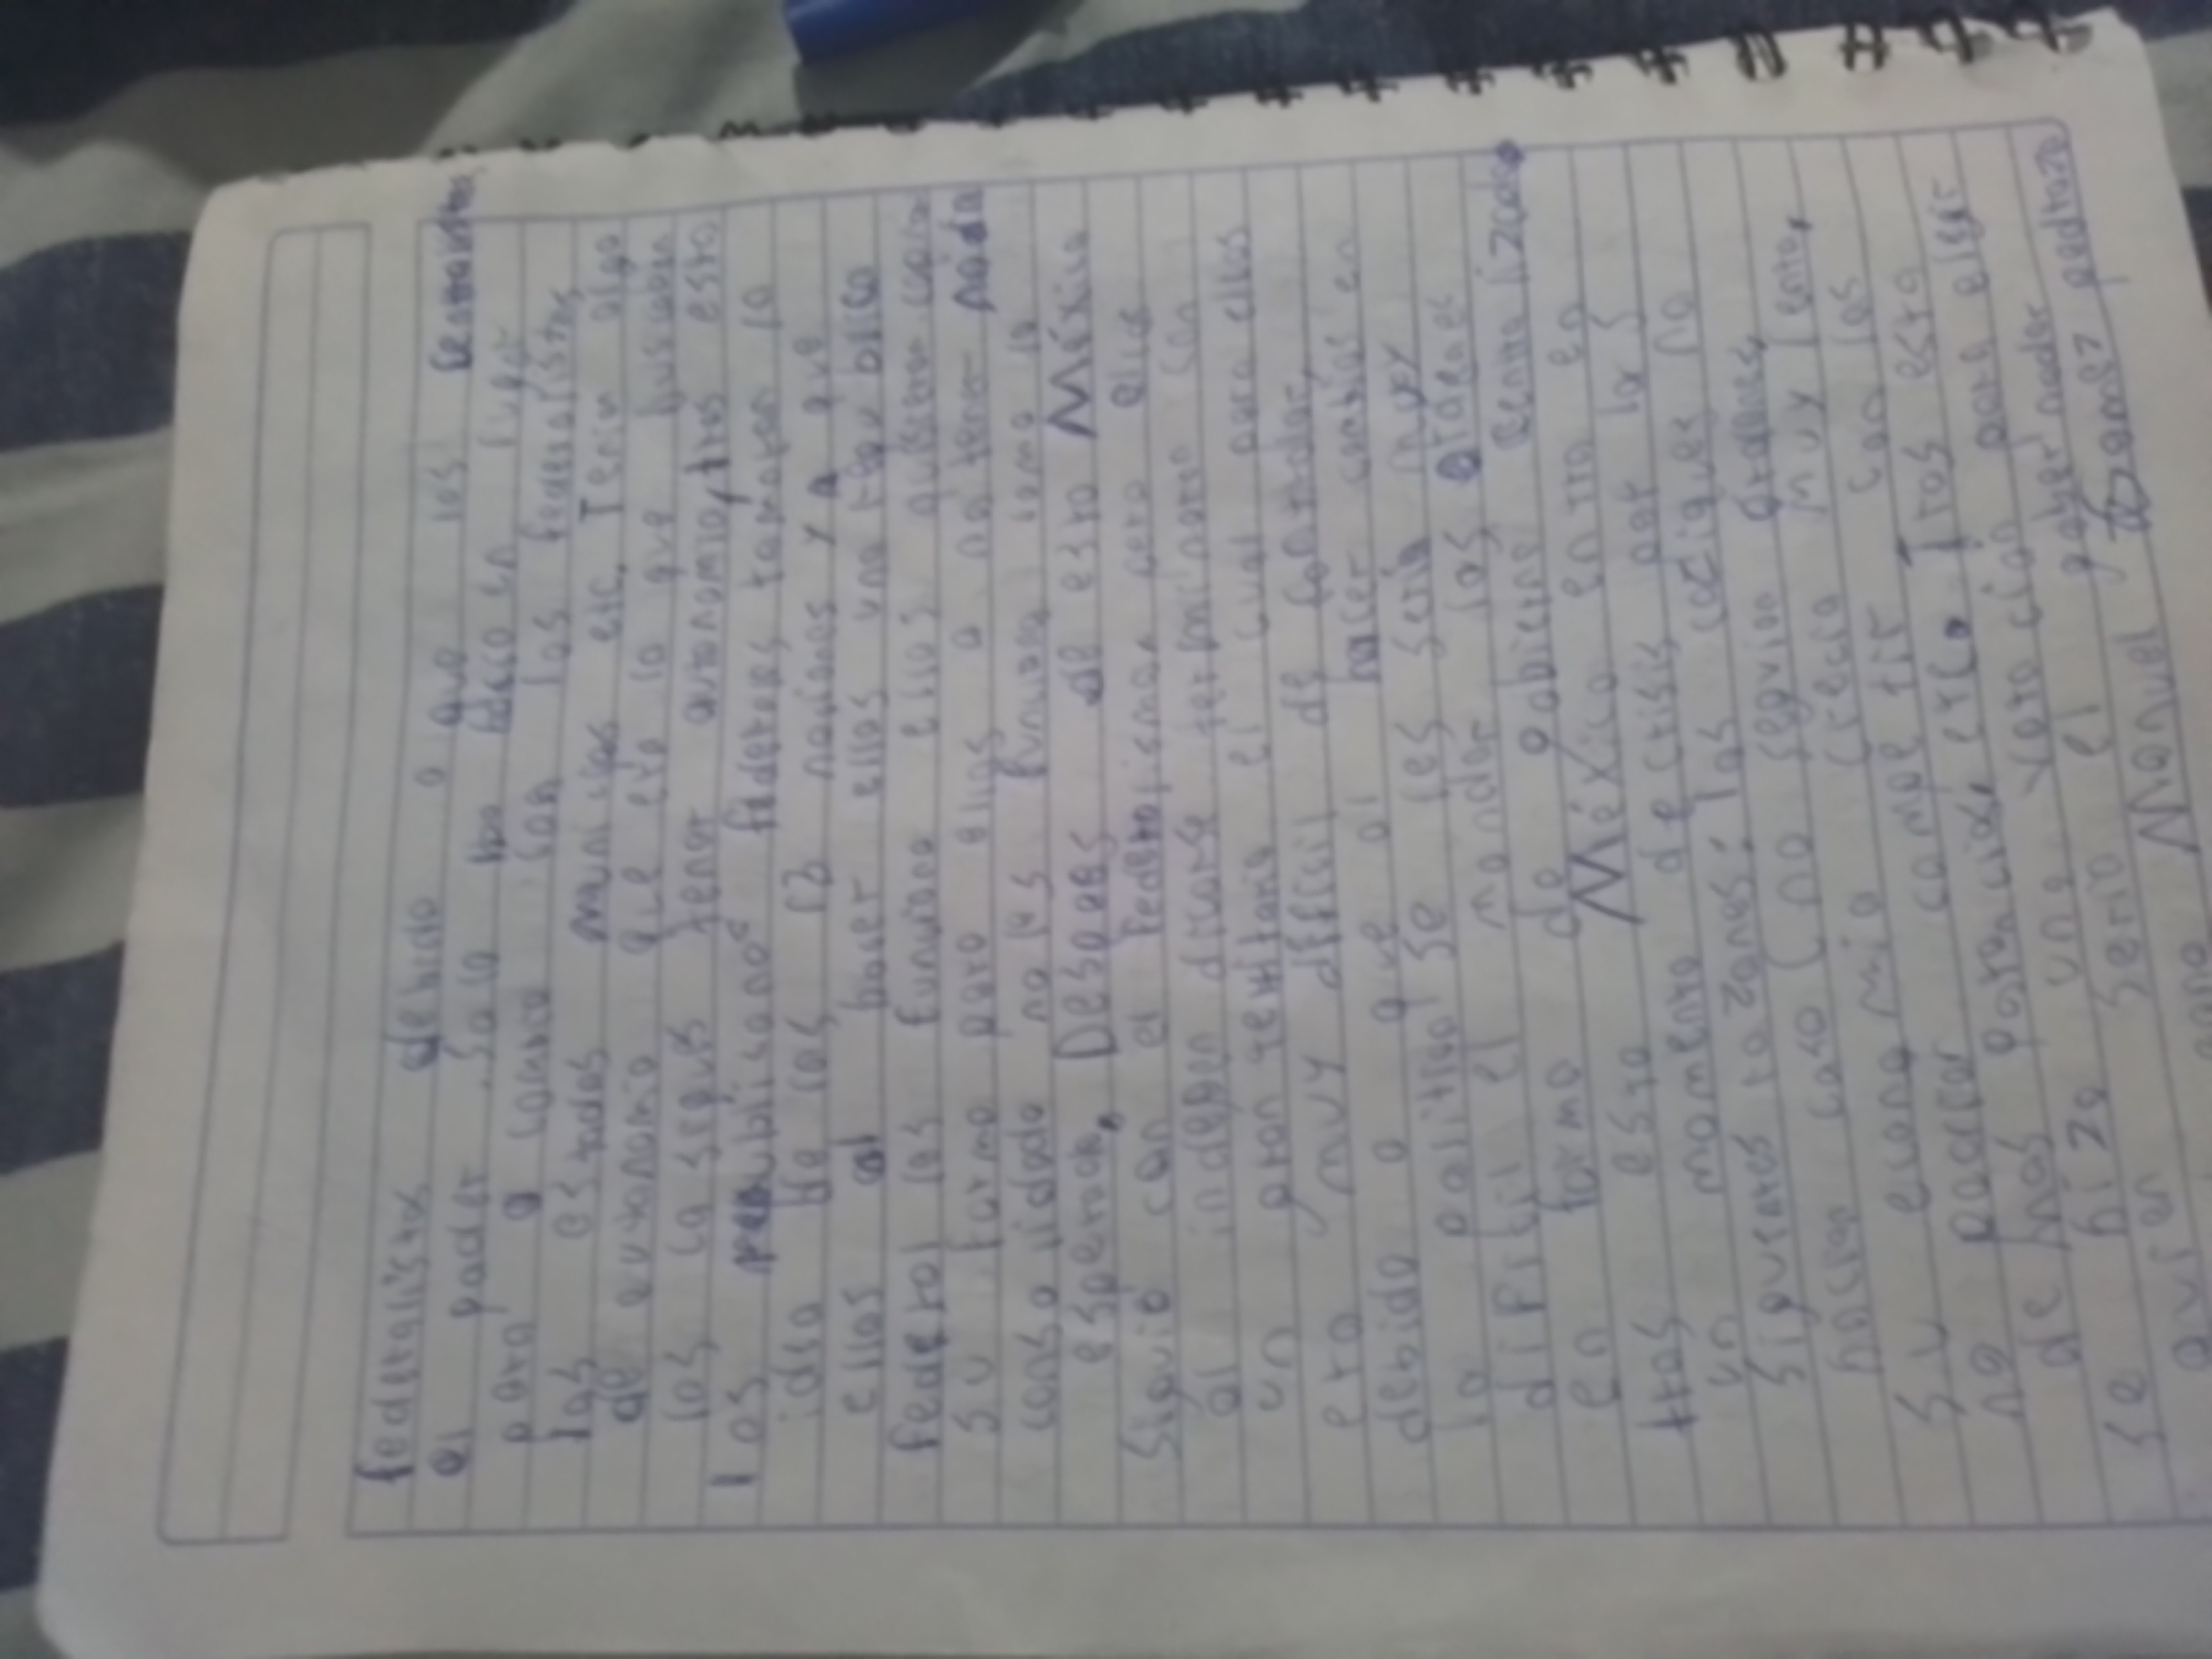 federalistas debido a que los centralistas
el poder solo
para a cambio con los federalistas
los estados municipios etc. Tenia algo
de autonomia que era lo que buscaban
los tener autonomia, esto
los republicanos federares tomaron la
idea de las naciones y a que
ellos al bacer ellos una republica
federal les funciono ellos quisieron
su forma para ellos a no tener nada
consolidado no les funciono como lo
esperado. Despues de esto México
siguio con el federalismo pero ellos
al indepen disarse terminaron con
un gran territorio el cual para ellos
era muy dificil de controlar,
debido a que al hacer cambios en
la politica se les seria muy
dificil el mandar las ordenes
en forma de gobierno centralizado
tras esto México entro en
un momento de crisis por las
siguientes razones: los caciques no
hacian caso (no seguian ordenes,
su economia crecia muy lento,
no podia competir con las
demas potencias, etc. Tras esto
se hizo una votacion para elegir
quien seria el gobernador
Manuel Gomez pedraza